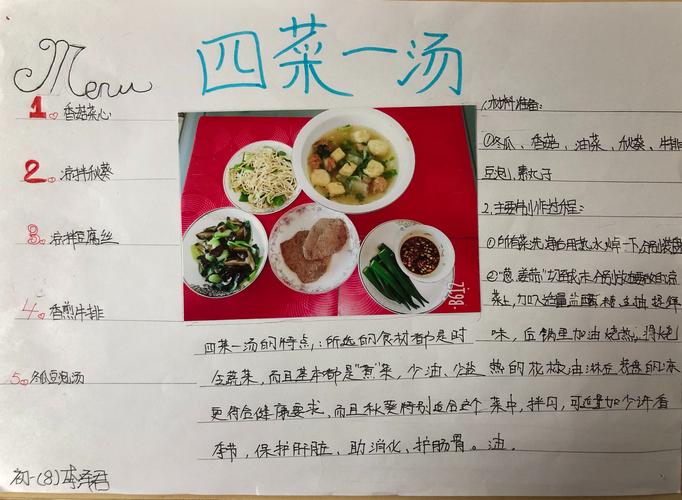 四菜一汤
Menu
1. 香菇菜心
2. 凉拌秋葵
3. 凉拌豆腐丝
4. 香煎牛排
5. 冬瓜豆泡汤
初一(8) 李泽君
四菜一汤的特点：所选的食材都是时
令蔬菜，而且基本都是"煮"菜，少油、少盐
更符合健康要求，而且秋葵特别适合这个
季节，保护肝脏、助消化、护肠胃。
1.材料准备：
①冬瓜、香菇、油菜、秋葵、牛排
豆泡、素丸子
2.主要制作过程：
①所有菜洗净后用热水焯一下分别装盘
②"葱、姜、蒜"切碎末分别放
菜上，加入适量盐、糖、生抽提鲜
味，后锅里加油烧热，将烧
热的花椒油淋在装盘的凉
菜中，拌匀，可适量加少许香
油。